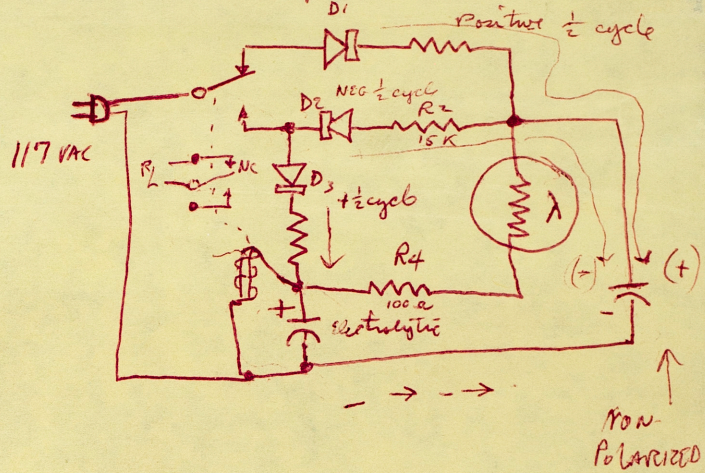 D1
Positive ½ cycle
D2
NEG ½ cycle
R2
15K
117 VAC
NC
D3
+½ cycle
λ
R4
100Ω
(-)
(+)
+
Electrolytic
-
NON-
POLARIZED